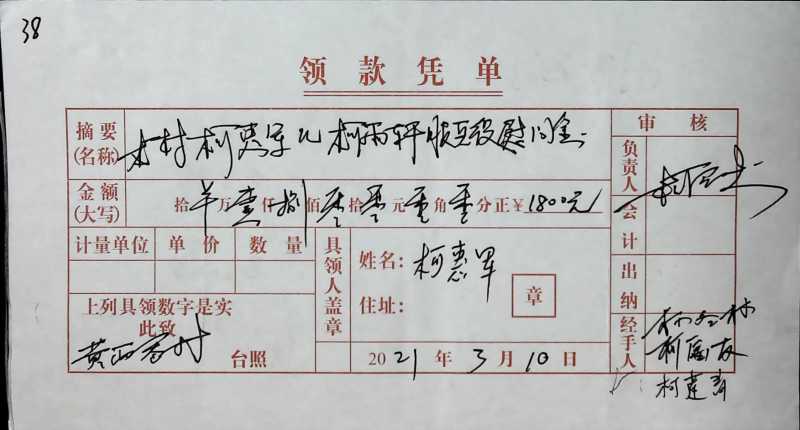 38
领款凭单
摘要(名称) 本村柯惠军儿柯雨轩服兵役慰问金
审核
金额(大写) 拾 万壹仟捌佰零拾零元零角零分正¥1800元
负责人
会计
计量单位 单价 数量
具领人盖章
姓名: 柯惠军
住址:
章
出纳
上列具领数字是实
此致
村 台照
2021年3月10日
经手人
柯建